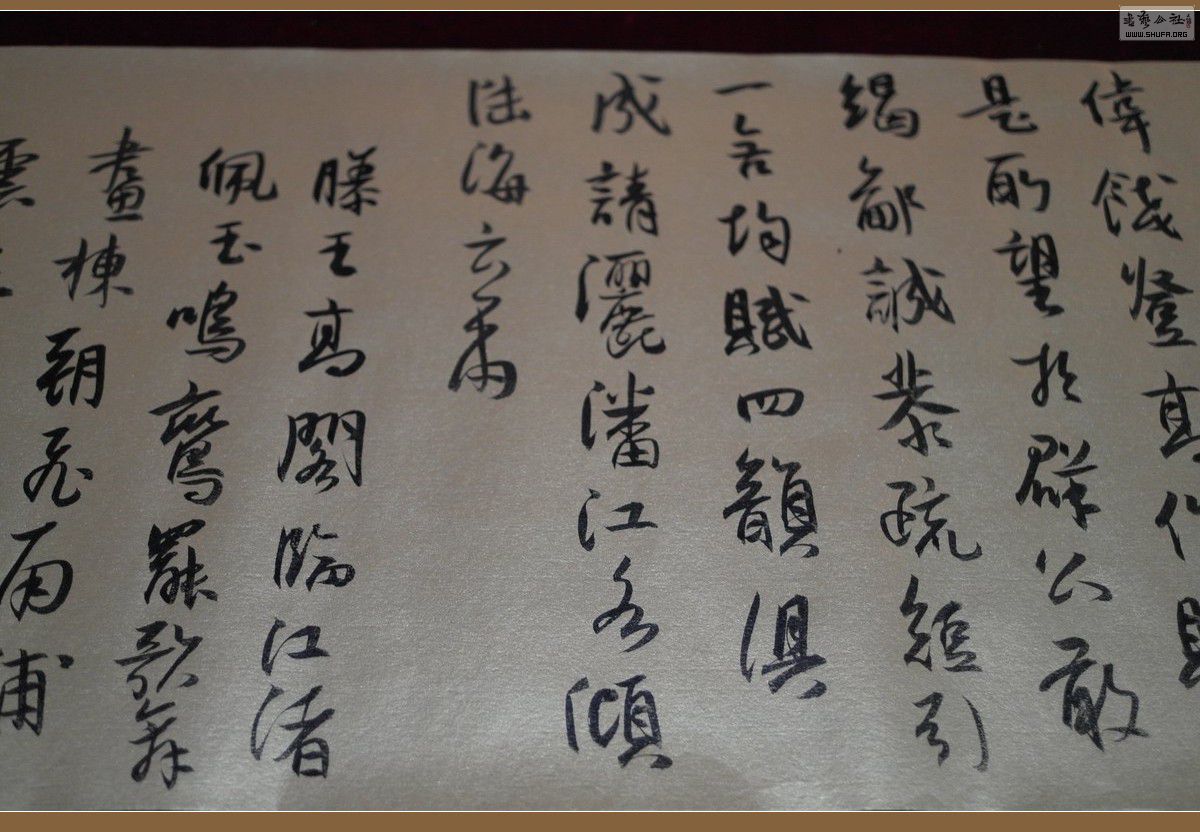 偉餞登高作賦
是所望於群公敢
竭鄙誠恭疏短引
一言均賦四韻俱
成請灑潘江各傾
陸海云爾
滕王高閣臨江渚
佩玉鳴鸞罷歌舞
畫棟朝飛南浦
雲
書藝公社
WWW.SHUFA.ORG